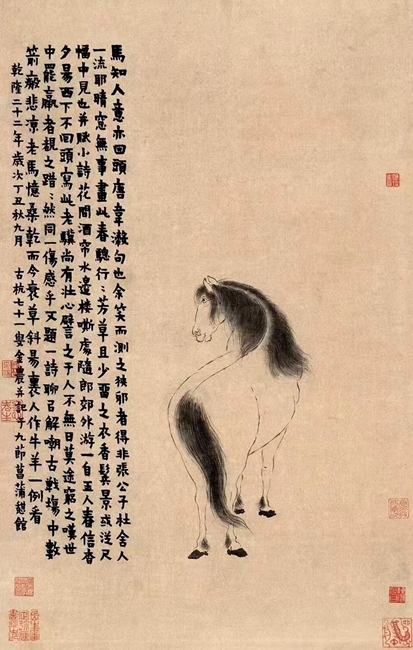 馬知人意亦回頭唐韋瀫句也余笑而測之狹邪者得非張公子杜舍人
一流耶晴窓無事畫此春驄行〻芳草且少畱之衣香鬢景或逆於
幅中見也并賦小詩花間酒帘水邊樓嘶處隨郎郊外游一自玉人春信杳
夕昜西下不回頭寫此老驥尚有壯心譬之于人不無日莫途窮之嘆世
中罷羸者覩之踖〻然同一傷感乎又題一詩聊自解嘲古戰塲中數
箭瘢悲凉老馬憶桑乾而今衰草斜昜裏人作牛羊一例看
乾隆二十二年歲次丁丑秋九月 古杭七十一叟金農并記于九節菖蒲憩館